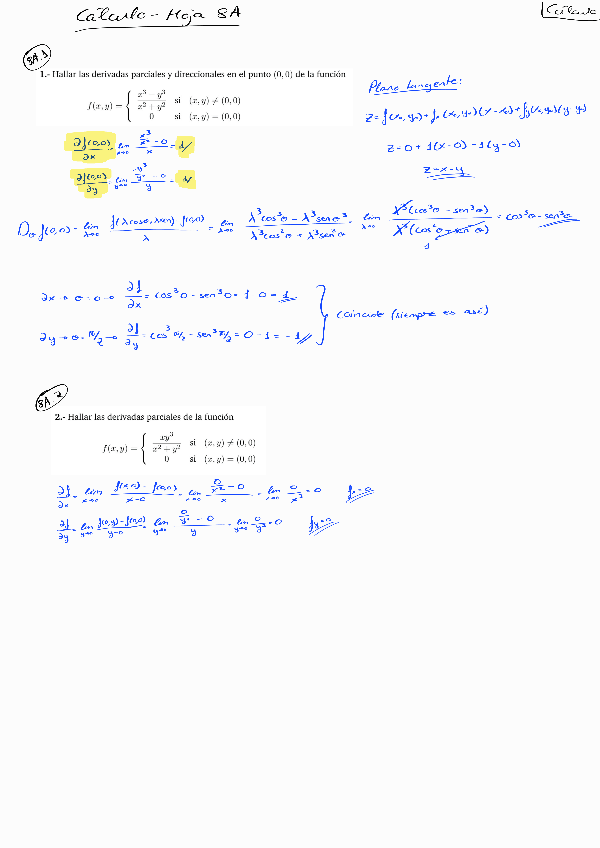 Cálculo - Hoja 8A
Cálculo
8A.1
1.- Hallar las derivadas parciales y direccionales en el punto (0, 0) de la función
f(x, y) = { (x³ − y³)/(x² + y²) si (x, y) ≠ (0, 0)
0 si (x, y) = (0, 0)
Plano tangente:
z = f(x₀, y₀) + fₓ(x₀, y₀)(x − x₀) + f_y(x₀, y₀)(y − y₀)
z = 0 + 1(x − 0) − 1(y − 0)
z = x − y
∂f(0,0)/∂x = lim x→0 (x³/x² − 0)/x = 1
∂f(0,0)/∂y = lim y→0 (−y³/y² − 0)/y = −1
D_θ f(0,0) = lim λ→0 (f(λ cosθ, λ sen) − f(0,0))/λ = lim λ→0 (λ³cos³θ − λ³senθ³)/(λ³cos²θ + λ³sen²θ) = lim λ→0 λ³(cos³θ − sen³θ)/λ³(cos²θ + sen²θ) = cos³θ − sen³θ
1
∂x → θ = 0 → ∂f/∂x = cos³0 − sen³0 = 1 − 0 = 1
∂y → θ = π/2 → ∂f/∂y = cos³π/2 − sen³π/2 = 0 − 1 = −1
coincide (siempre es así)
8A.2
2.- Hallar las derivadas parciales de la función
f(x, y) = { xy³/(x² + y²) si (x, y) ≠ (0, 0)
0 si (x, y) = (0, 0)
∂f/∂x = lim x→0 (f(x,0) − f(0,0))/(x−0) = lim x→0 (0/x² − 0)/x = lim x→0 0/x³ = 0 fₓ = 0
∂f/∂y = lim y→0 (f(0,y) − f(0,0))/(y−0) = lim y→0 (0/y² − 0)/y = lim y→0 0/y³ = 0 f_y = 0